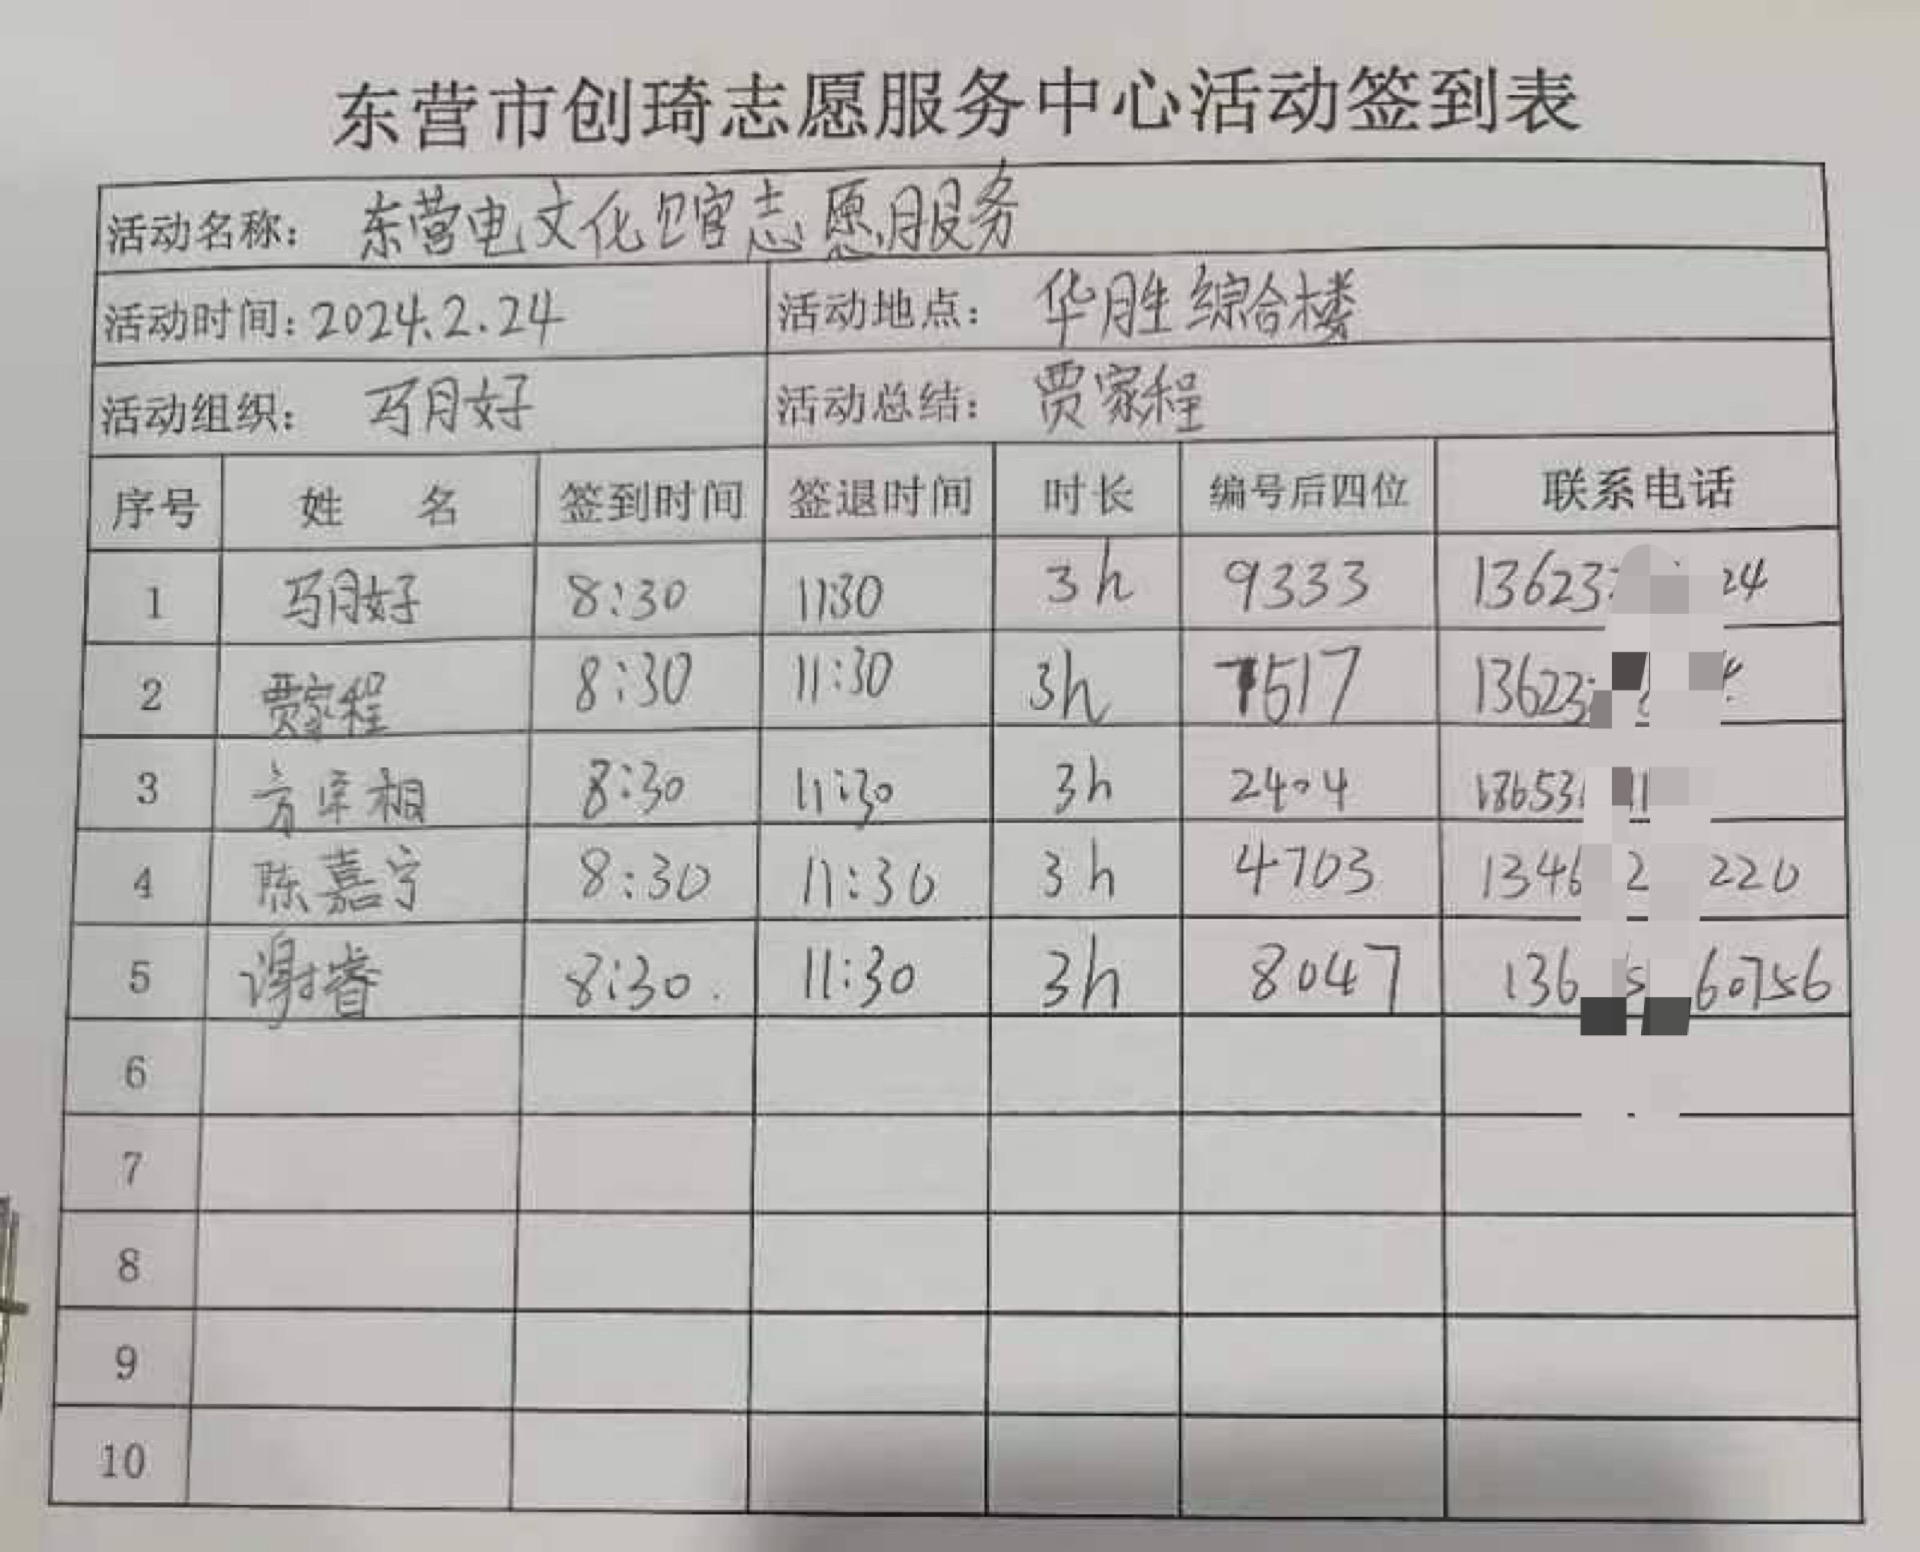 东营市创琦志愿服务中心活动签到表
活动名称： 东营电文化馆志愿服务
活动时间：2024.2.24 活动地点： 华胜综合楼
活动组织： 马月好 活动总结： 贾家程
序号 姓 名 签到时间 签退时间 时长 编号后四位 联系电话
1 马月好 8:30 11:30 3h 9333 13623 24
2 贾家程 8:30 11:30 3h 7517 13623
3 8:30 11:30 3h 2404 18653
4 陈嘉宁 8:30 11:30 3h 4703 1346 2 220
5 谢睿 8:30 11:30 3h 8047 136 5 60756
6
7
8
9
10